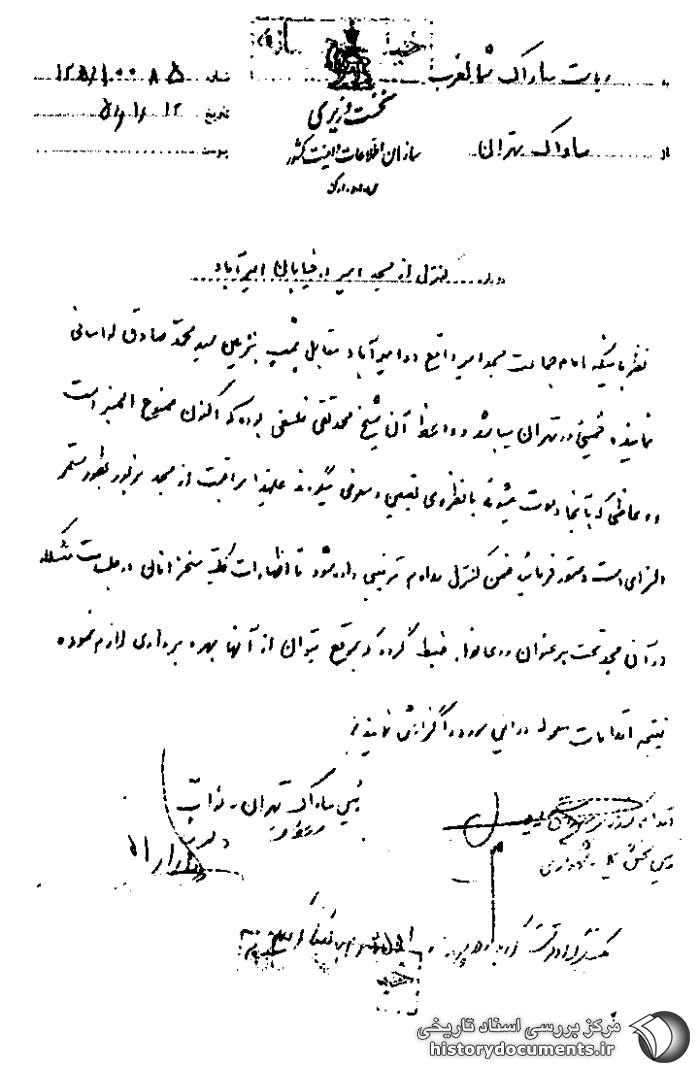 خیلی
به ریاست ساواک شمالغرب
شماره ۱۲۵/۱۰۰۸۵
نخست وزیری
تاریخ ۵۱/۱/۱۲
از ساواک تهران
سازمان اطلاعات و امنیت کشور
پیوست
س.ا.و.ا.ک
درباره کنترل از مسجد امیر در خیابان امیرآباد
نظر باینکه امام جماعت مسجد امیر واقع در امیرآباد مقابل پمپ بنزین سید محمد صادق لواسانی
نماینده خمینی در تهران میباشد و واعظ آن شیخ محمد تقی فلسفی بوده که اکنون ممنوع المنبر است
و وعاظی که بآنجا دعوت میشوند با نظر وی تعیین و معرفی میگردند علیهذا مراقبت از مسجد مزبور بطور مستمر
الزامی است دستور فرمائید ضمن کنترل مداوم ترتیبی داده شود تا اظهارات کلیه سخنرانان در جلسات متشکله
در آن مسجد تحت هر عنوان و محتوا ضبط گردد که بموقع بتوان از آنها بهره برداری لازم نموده
نتیجه اقدامات معموله در این مورد را گزارش نمایند
رئیس ساواک تهران - نواب
رئیس بخش
مرکز بررسی اسناد تاریخی
historydocuments.ir